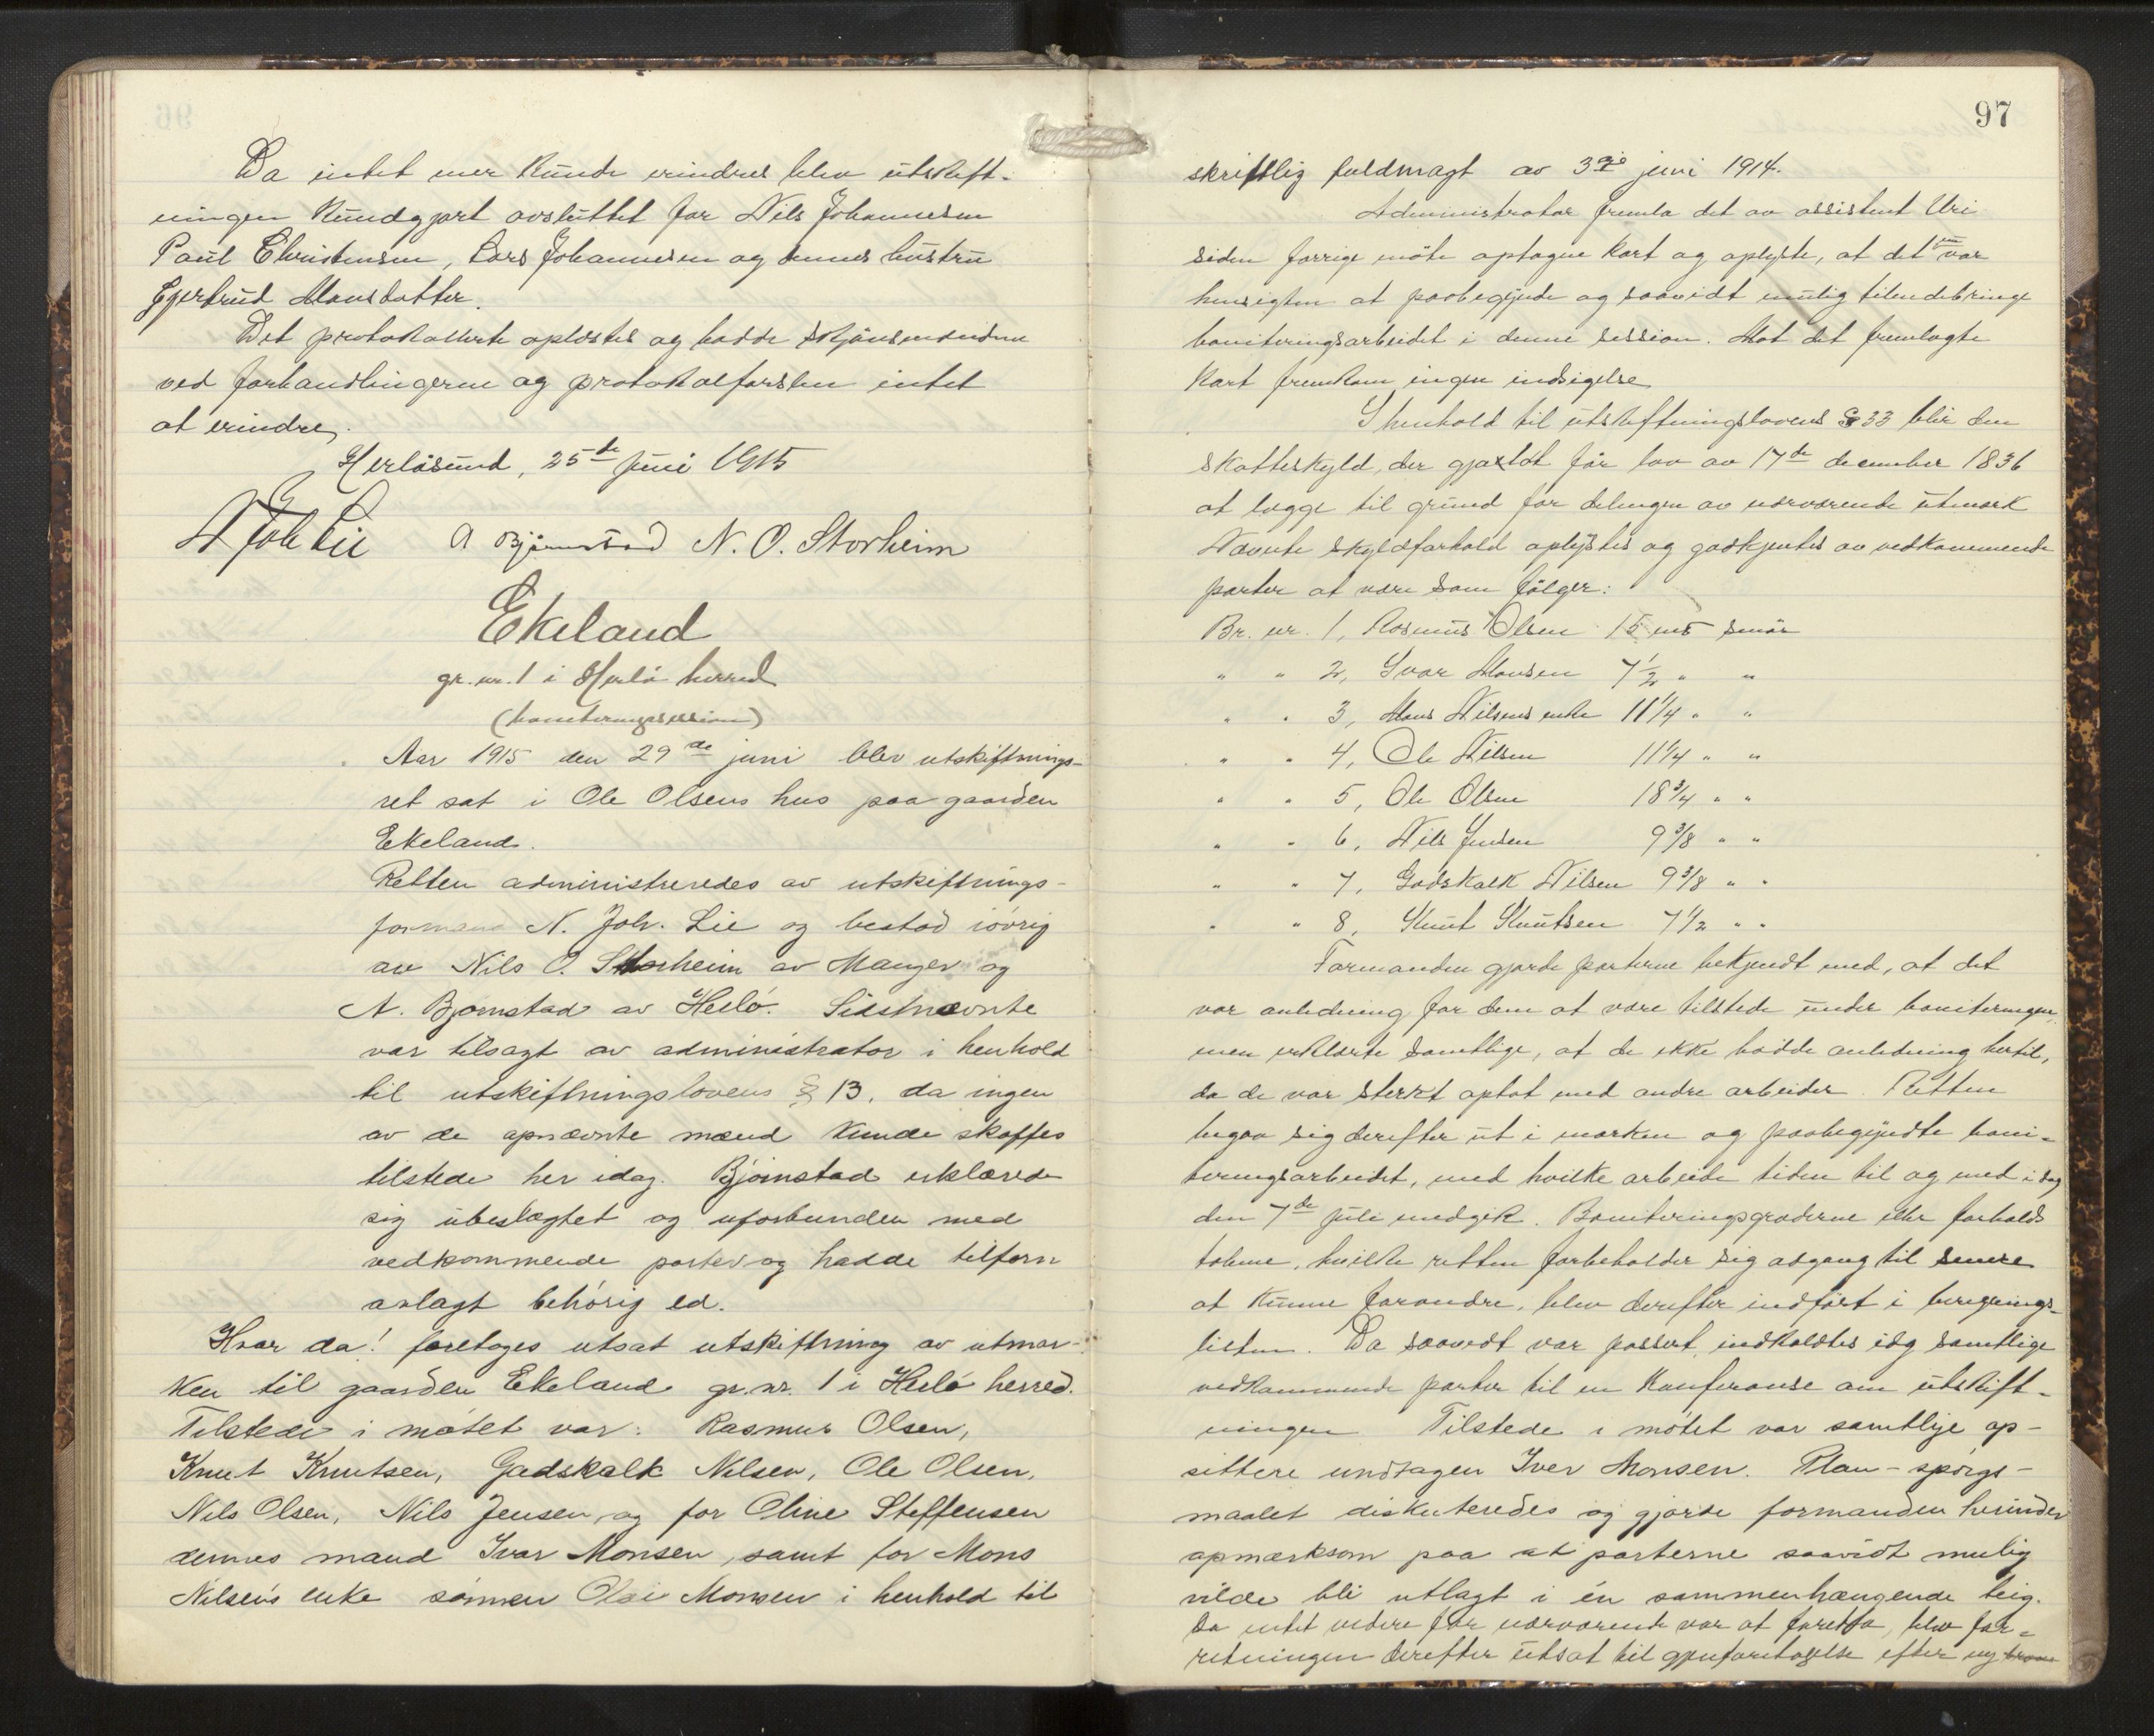 Da intet mer kunde erindres blev utskift-
ningen kundgjort avsluttet for Nils Johannesen
Paul Christensen, Lars Johannesen og dennes hustru
Gjertrud Monsdatter.
Det protokollerte oplæstes og hadde skjönsmændene
ved forhandlingerne og protokolførslen intet
at erindre.
Herlösund, 25de juni 1915
N Joh Lie A Bjørnstad N. O. Storheim
Ekeland
gr. nr. 1 i Herlö herred
(boniteringssession)
Aar 1915 den 29de juni blev utskiftnings-
ret sat i Ole Olsens hus paa gaarden
Ekeland.
Retten administreredes av utskiftnings-
formand N. Joh. Lie og bestod iövrig
av Nils O. Storheim av Manger og
A. Bjørnstad av Herlö. Sidstnævnte
var tilsagt av administrator i henhold
til utskiftningslovens § 13, da ingen
av de opnævnte mænd kunde skaffes
tilstede her idag. Bjørnstad erklærede
sig ubeslægtet og uforbunden med
vedkommende parter og hadde tilforn
avlagt behörig ed.
Hvor da! foretoges utsat utskiftning av utmar-
ken til gaarden Ekeland gr. nr. 1 i Herlö herred.
Tilstede i mötet var: Rasmus Olsen,
Knut Knutsen, Gadskalk Nilsen, Ole Olsen,
Nils Olsen, Nils Jensen og for Oline Steffensen
dennes mand Ivar Monsen, samt for Mons
Nilsens enke sönnen Olai Monsen i henhold til
97
skriftlig fuldmagt av 3die juni 1914.
Administrator fremla det av assistent Uri
siden forrige möte optagne kart og oplyste, at det nu var
hensigten at paabegynde og saavidt mulig tilendebringe
boniteringsarbeidet i denne session. Mot det fremlagte
kart fremkom ingen indsigelse
I henhold til utskiftningslovens § 33 blir den
skatteskyld, der gjaldt før lov av 17de december 1836
at lægge til grund for delingen av nærværende utmark
Nævnte skyldforhold oplystes og godkjentes av vedkommende
parter at være som fölger:
Br. nr. 1, Rasmus Olsen 15 mrk smör
" " 2, Ivar Monsen 7 1/2 " "
" " 3, Mons Nilsens enke 11 1/4 " "
" " 4, Ole Nilsen 11 1/4 " "
" " 5, Ole Olsen 18 3/4 " "
" " 6, Nils Jensen 9 3/8 " "
" " 7, Godskalk Nilsen 9 3/8 " "
" " 8, Knut Knutsen 7 1/2 " "
Formanden gjorde parterne bekjendt med, at det
var anledning for dem at være tilstede under boniteringen,
men erklærte samtlige, at de ikke hadde anledning hertil,
da de var sterkt optat med andre arbeider. Retten
begav sig derefter ut i marken og paabegyndte boni-
teringsarbeidet, med hvilke arbeide tiden til og med i dag
den 7de juli medgik. Boniteringsgraderne eller forholds
tallene, hvilke retten forbeholder sig adgang til senere
at kunne forandre, blev derefter indfört i beregnings-
listen. Da saavidt var passert, indkaldtes idag samtlige
vedkommende parter til en konferanse om utskift-
ningen Tilstede i mötet var samtlige op-
sittere undtagen Iver Monsen. Plan-spörgs-
maalet diskuteredes og gjorde formanden herunder
opmerksom paa at parterne saavidt mulig
vilde bli utlagt i én sammenhængende teig.
Da intet videre for nærværende var at foreta, blev for-
retningen derefter utsat til gjenforetagelse efter ny